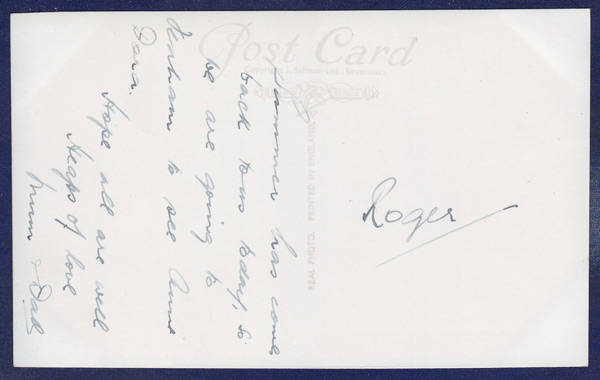 Post Card
Copyright J. Salmon Ltd., Sevenoaks
REAL PHOTO. PRINTED IN ENGLAND
Summer has come
back to us today, so
we are going to
Denham to see Anne
Dora.
Hope all are well
Heaps of love
Mum & Dad
Roger